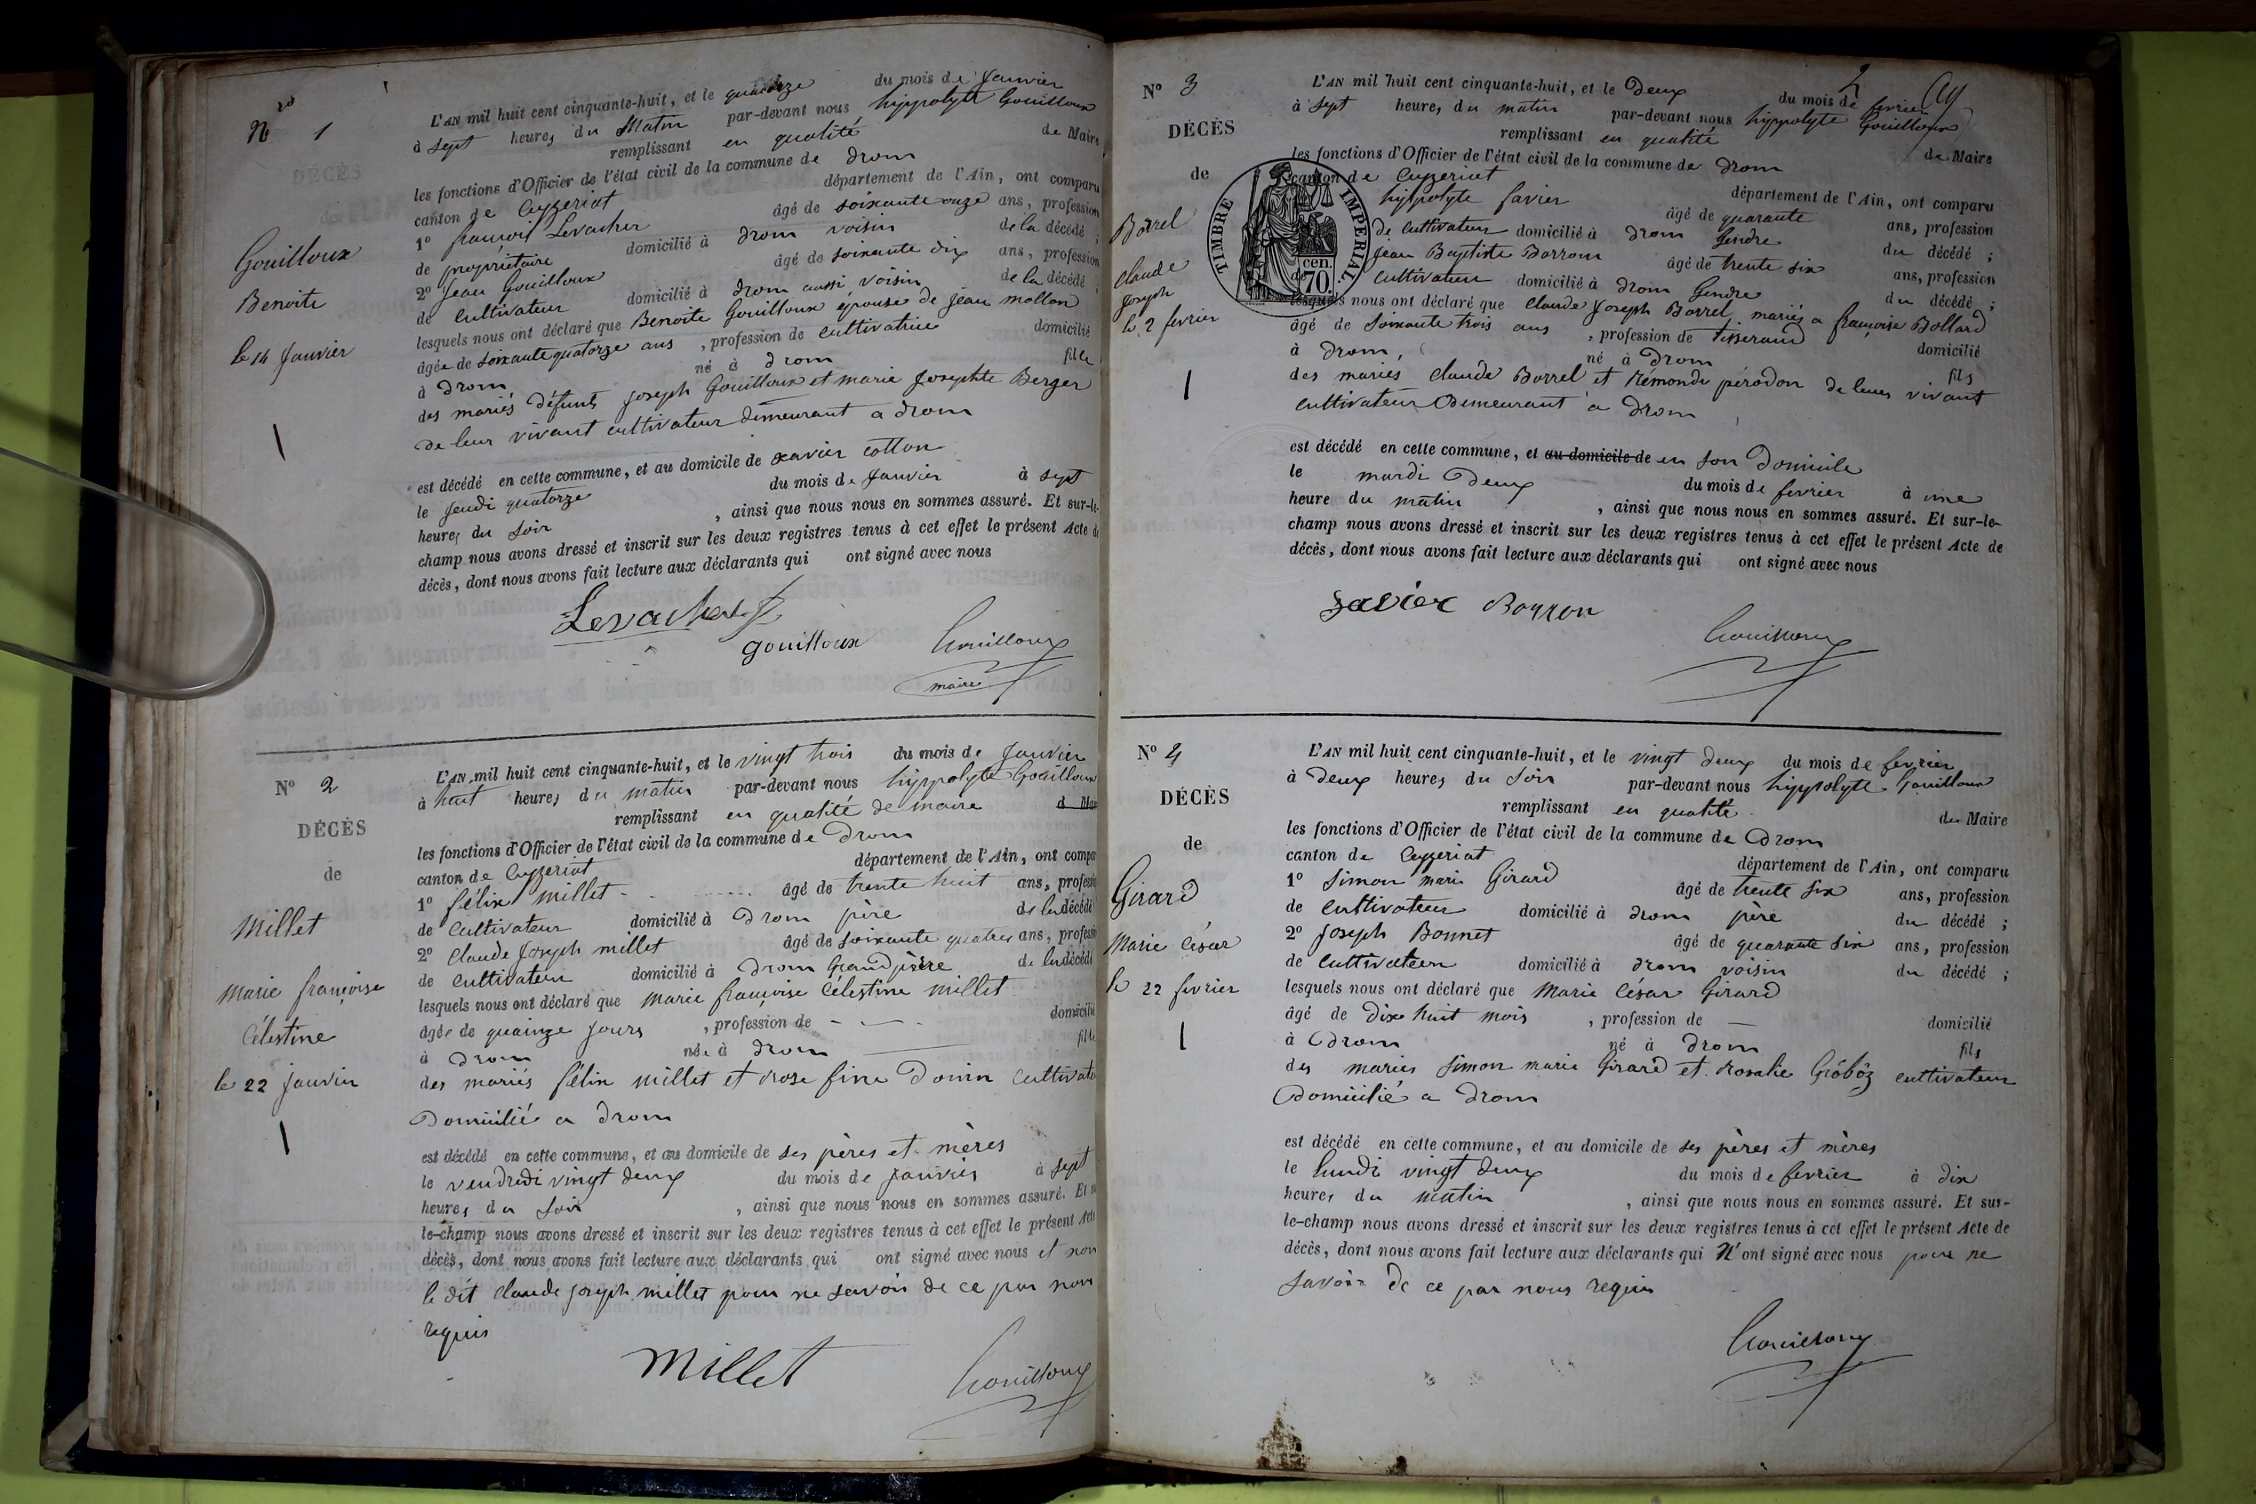 No 1
DÉCÈS
de
Gouilloux
Benoite
le 14 Janvier
L'AN mil huit cent cinquante-huit, et le quatorze du mois de Janvier
à sept heures du Matin par-devant nous hyppolyte Gouilloux
remplissant en qualité de Maire
les fonctions d'Officier de l'état civil de la commune de Drom
canton de Ceyzeriat département de l'Ain, ont comparu
1º françois Levacher âgé de soixante onze ans, profession
de propriétaire domicilié à Drom voisin de la décédé ;
2º Jean Gouilloux âgé de soixante dix ans, profession
de Cultivateur domicilié à Drom aussi voisin de la décédé ;
lesquels nous ont déclaré que Benoite Gouilloux épouse de jean mollon
âgée de soixante quatorze ans , profession de cultivatrice domicilié
à Drom né à Drom fille
des mariés Défunts joseph Gouilloux et marie josephte Berger
de leur vivant cultivateur demeurant a Drom
est décédé en cette commune, et au domicile de xavier cotton
le jeudi quatorze du mois de Janvier à sept
heures du soir , ainsi que nous nous en sommes assuré. Et sur-le-
champ nous avons dressé et inscrit sur les deux registres tenus à cet effet le présent Acte de
décès, dont nous avons fait lecture aux déclarants qui ont signé avec nous
Levacher
gouilloux Gouilloux
maire
Nº 2
DÉCÈS
de
Millet
Marie françoise
Célestine
le 22 janvier
L'AN mil huit cent cinquante-huit, et le vingt trois du mois de Janvier
à huit heures du matin par-devant nous hyppolyte Gouilloux
remplissant en qualité de maire d Mai
les fonctions d'Officier de l'état civil de la commune de Drom
canton de Ceyzeriat département de l'Ain, ont compa
1º félix millet âgé de trente huit ans, profess
de Cultivateur domicilié à Drom père de la décédé
2º Claude Joseph millet âgé de soixante quatres ans, profess
de Cultivateur domicilié à Drom Grand père de la décédé
lesquels nous ont déclaré que marie françoise Célestine millet
âgée de quainze jours , profession de domicilié
à Drom née à Drom fille
des mariés félix millet et rose fine Donin Cultivate
Domicilié a Drom
est décédé en cette commune, et au domicile de ses pères et mères
le vendredi vingt deux du mois de Janvier à sept
heures du soir , ainsi que nous nous en sommes assuré. Et su
le-champ nous avons dressé et inscrit sur les deux registres tenus à cet effet le présent Acte
décès, dont nous avons fait lecture aux déclarants qui ont signé avec nous et non
le dit Claude joseph millet pour ne savoir de ce par nous
requis
Millet Gouilloux
2
Nº 3
DÉCÈS
de
Borrel
Claude
Joseph
le 2 fevrier
TIMBRE IMPERIAL
cen.
de 70.
L'AN mil huit cent cinquante-huit, et le Deux du mois de fevrier
à sept heures du matin par-devant nous hyppolyte Gouilloux
remplissant en qualité de Maire
les fonctions d'Officier de l'état civil de la commune de Drom
canton de Ceyzeriat département de l'Ain, ont comparu
hyppolyte favier âgé de quarante ans, profession
de Cultivateur domicilié à Drom Gendre du décédé ;
Jean Baptiste Borron âgé de trente six ans, profession
Cultivateur domicilié à Drom Gendre du décédé ;
lesquels nous ont déclaré que Claude Joseph Borrel, mariés a françoise Bollard
âgé de soixante trois ans , profession de tisserand domicilié
à Drom, né à Drom fils
des mariés Claude Borrel et Rémonde pérodon de leurs vivant
Cultivateur Demeurant a Drom
est décédé en cette commune, et au domicile de en son Domicile
le mardi Deux du mois de fevrier à une
heure du matin , ainsi que nous nous en sommes assuré. Et sur-le-
champ nous avons dressé et inscrit sur les deux registres tenus à cet effet le présent Acte de
décès, dont nous avons fait lecture aux déclarants qui ont signé avec nous
favier Borron
Gouilloux
Nº 4
DÉCÈS
de
Girard
Marie César
le 22 fevrier
L'AN mil huit cent cinquante-huit, et le vingt deux du mois de fevrier
à Deux heures du soir par-devant nous hyppolyte Gouilloux
remplissant en qualité de Maire
les fonctions d'Officier de l'état civil de la commune de Drom
canton de Ceyzeriat département de l'Ain, ont comparu
1º Simon marie Girard âgé de trente six ans, profession
de Cultivateur domicilié à Drom père du décédé ;
2º Joseph Bonnet âgé de quarante six ans, profession
de Cultivateur domicilié à Drom voisin du décédé ;
lesquels nous ont déclaré que Marie César Girard
âgé de Dixe huit mois , profession de — domicilié
à Drom né à Drom fils
des mariés Simon marie Girard et Rosalie Gròbóz cultivateur
Domicilié a Drom
est décédé en cette commune, et au domicile de ses pères et mères
le lundi vingt deux du mois de fevrier à dix
heures du matin , ainsi que nous nous en sommes assuré. Et sur-
le-champ nous avons dressé et inscrit sur les deux registres tenus à cet effet le présent Acte de
décès, dont nous avons fait lecture aux déclarants qui N'ont signé avec nous pour ne
savoir de ce par nous requis
Gouilloux